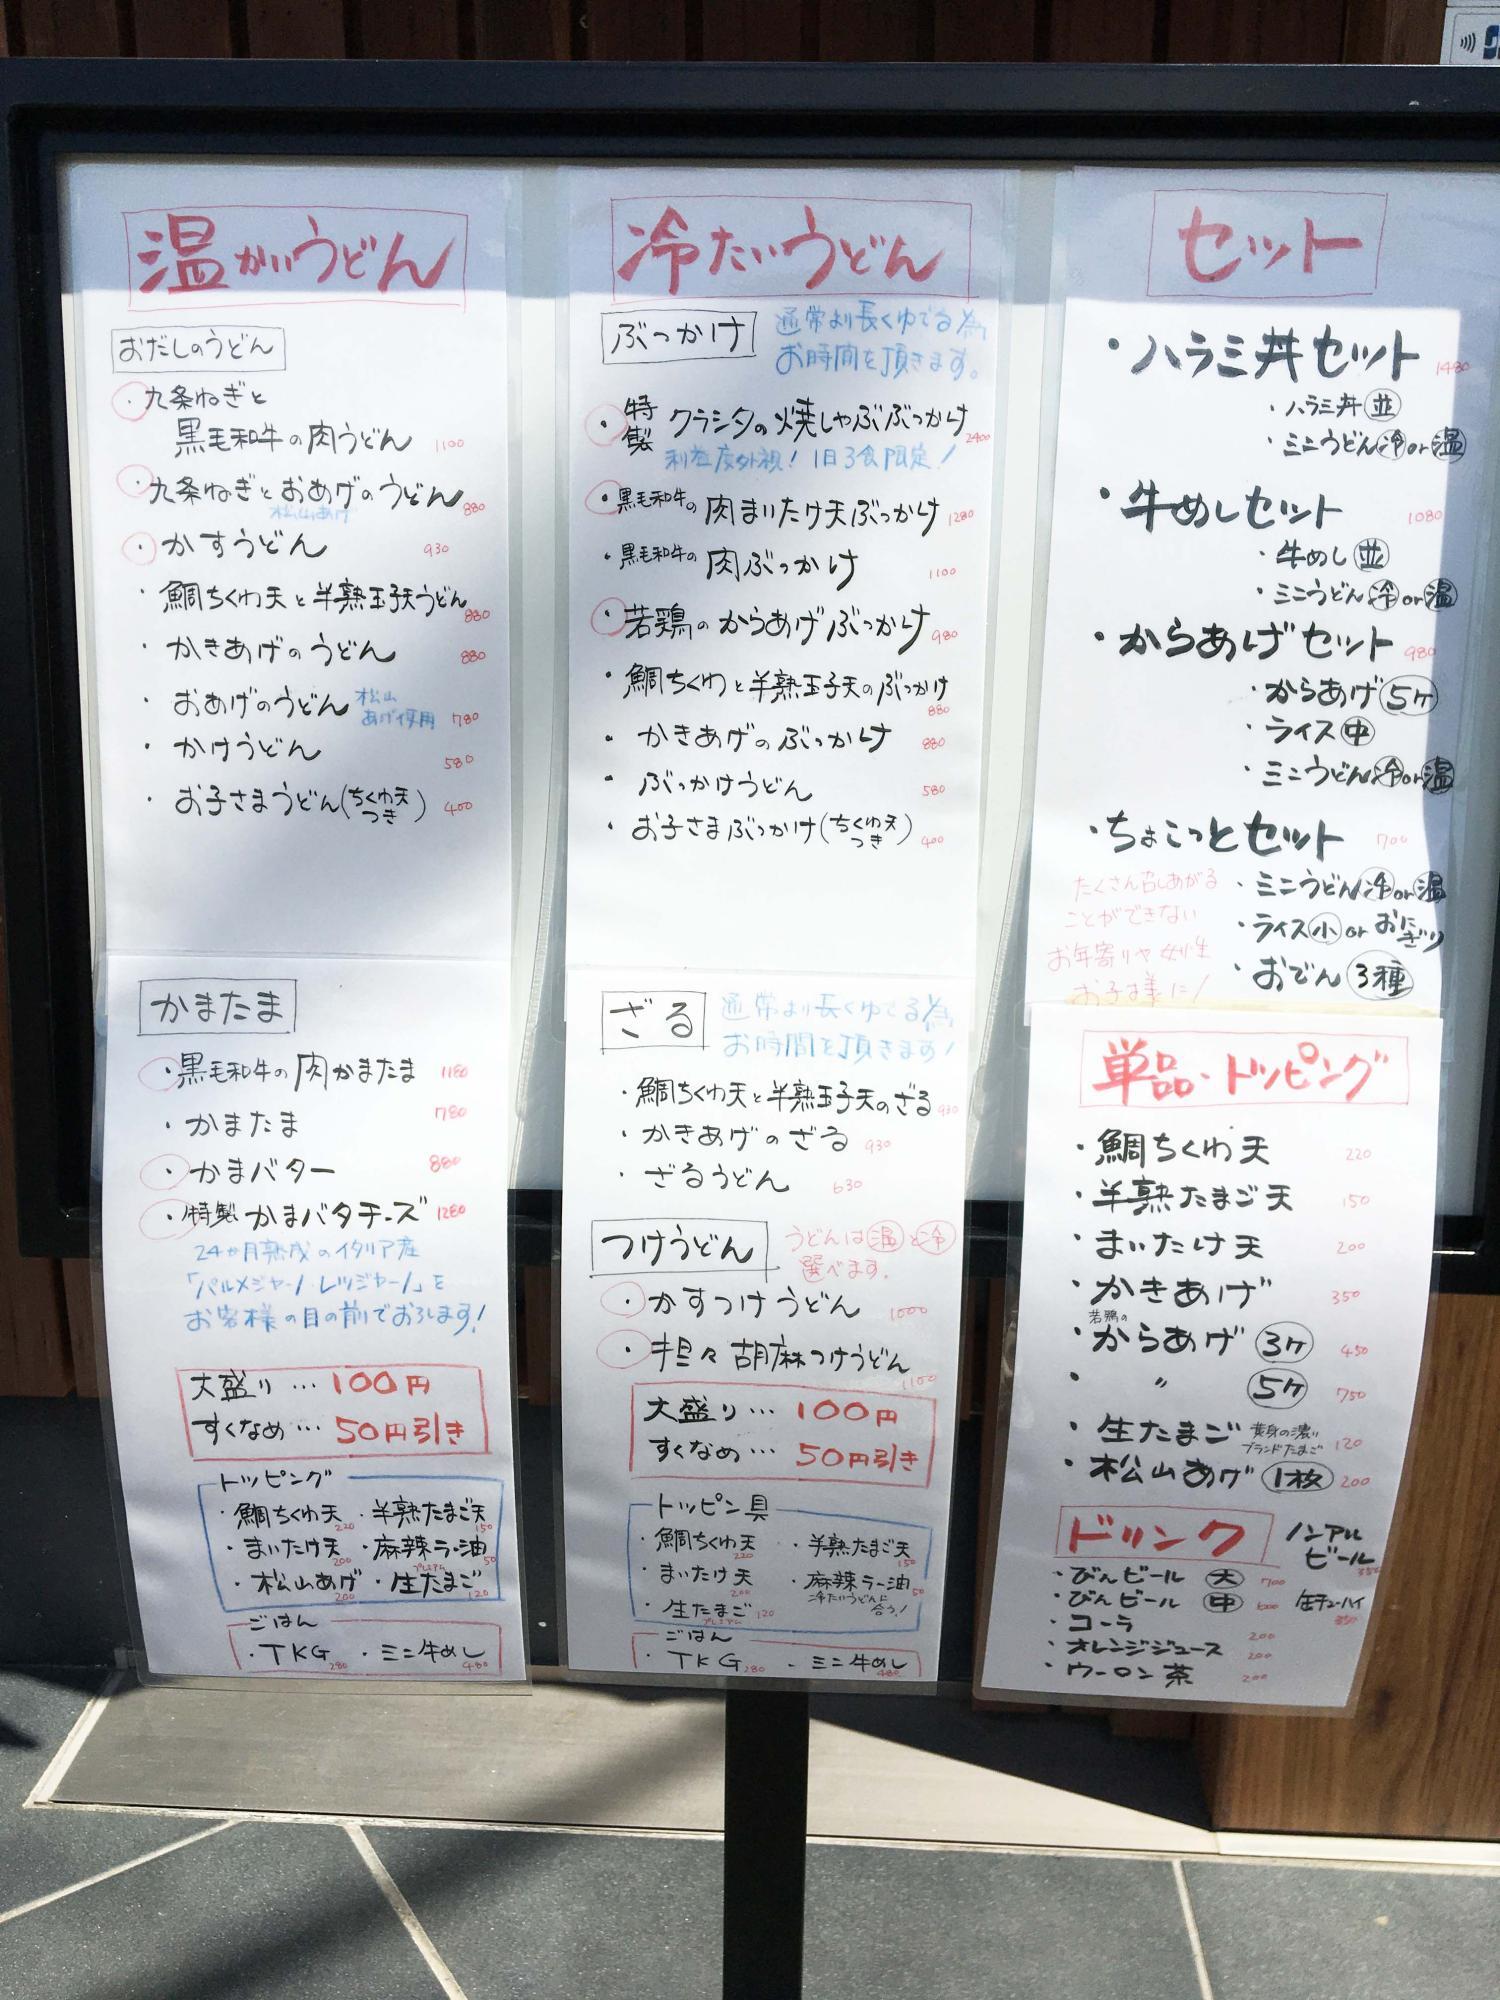 温かいうどん
おだしのうどん
・九条ねぎと
黒毛和牛の肉うどん 1100
・九条ねぎとおあげのうどん 880
松山あげ
・かすうどん 930
・鯛ちくわ天と半熟玉子天うどん 880
・かきあげのうどん 880
・おあげのうどん 松山あげ使用 780
・かけうどん 580
・お子さまうどん(ちくわ天つき) 400
かまたま
・黒毛和牛の肉かまたま 1180
・かまたま 780
・かまバター 880
・特製かまバタチーズ 1280
24か月熟成のイタリア産
「パルメジャーノ・レッジャーノ」を
お客様の目の前でおろします!
大盛り…100円
すくなめ…50円引き
トッピング
・鯛ちくわ天 220 ・半熟たまご天 150
・まいたけ天 200 ・麻辣ラー油 50
・松山あげ 200 ・プレミアム生たまご 120
ごはん
・TKG 280 ・ミニ牛めし 480
冷たいうどん
ぶっかけ 通常より長くゆでる為
お時間を頂きます。
・特製 クラシタの焼しゃぶぶっかけ 2400
利益度外視! 1日3食限定!
・黒毛和牛の肉まいたけ天ぶっかけ 1280
・黒毛和牛の肉ぶっかけ 1100
・若鶏のからあげぶっかけ 980
・鯛ちくわと半熟玉子天のぶっかけ 880
・かきあげのぶっかけ 880
・ぶっかけうどん 580
・お子さまぶっかけ(ちくわ天つき) 400
ざる 通常より長くゆでる為
お時間を頂きます!
・鯛ちくわ天と半熟玉子天のざる 930
・かきあげのざる 930
・ざるうどん 630
つけうどん うどんは温と冷
選べます。
・かすつけうどん 1000
・担々胡麻つけうどん 1100
大盛り…100円
すくなめ…50円引き
トッピン具
・鯛ちくわ天 220 ・半熟たまご天 150
・まいたけ天 200 ・麻辣ラー油 50
冷たいうどんに合う!
・生たまご 120
プレミアム
ごはん
・TKG 280 ・ミニ牛めし 480
セット
・ハラミ丼セット 1480
・ハラミ丼 並
・ミニうどん 冷or温
・牛めしセット 1080
・牛めし 並
・ミニうどん 冷or温
・からあげセット 980
・からあげ 5ヶ
・ライス 中
・ミニうどん 冷or温
・ちょこっとセット 700
たくさん召しあがる
ことができない
お年寄りや女性
お子様に!
・ミニうどん 冷or温
・ライス 小 or おにぎり
・おでん 3種
単品・トッピング
・鯛ちくわ天 220
・半熟たまご天 150
・まいたけ天 200
・かきあげ 350
・若鶏のからあげ 3ヶ 450
・〃 5ヶ 750
・生たまご 黄身の濃いブランドたまご 120
・松山あげ 1枚 200
ドリンク
ノンアルビール 350
・びんビール 大 700
・びんビール 中 600
缶チューハイ 350
・コーラ 200
・オレンジジュース 200
・ウーロン茶 200